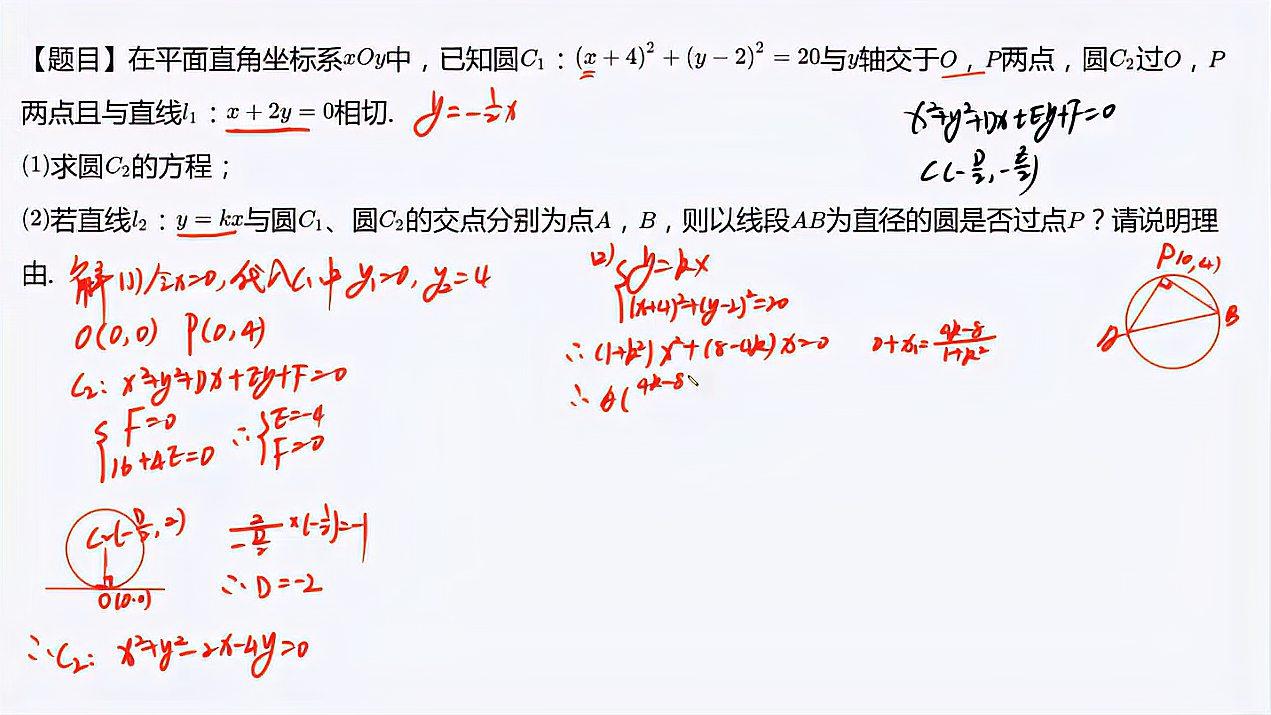 【题目】在平面直角坐标系xOy中，已知圆C₁：(x+4)²+(y−2)²=20与y轴交于O，P两点，圆C₂过O，P
两点且与直线l₁：x+2y=0相切. y=-½x
x²+y²+Dx+Ey+F=0
C(-D/2,-E/2)
(1)求圆C₂的方程；
(2)若直线l₂：y=kx与圆C₁、圆C₂的交点分别为点A，B，则以线段AB为直径的圆是否过点P？请说明理
由.
解(1)令x=0,代入C₁中 y₁=0, y₂=4
O(0,0) P(0,4)
C₂: x²+y²+Dx+Ey+F=0
{F=0
16+4E=0
∴{E=-4
F=0
C₂(-D/2,2)
O(0.0)
2/(-D/2)×(-½)=-1
∴D=-2
∴C₂: x²+y²-2x-4y=0
(2){y=kx
(x+4)²+(y-2)²=20
∴(1+k²)x²+(8-4k)x=0 0+x₁=(4k-8)/(1+k²)
∴A(4k-8
P(0,4)
A
B